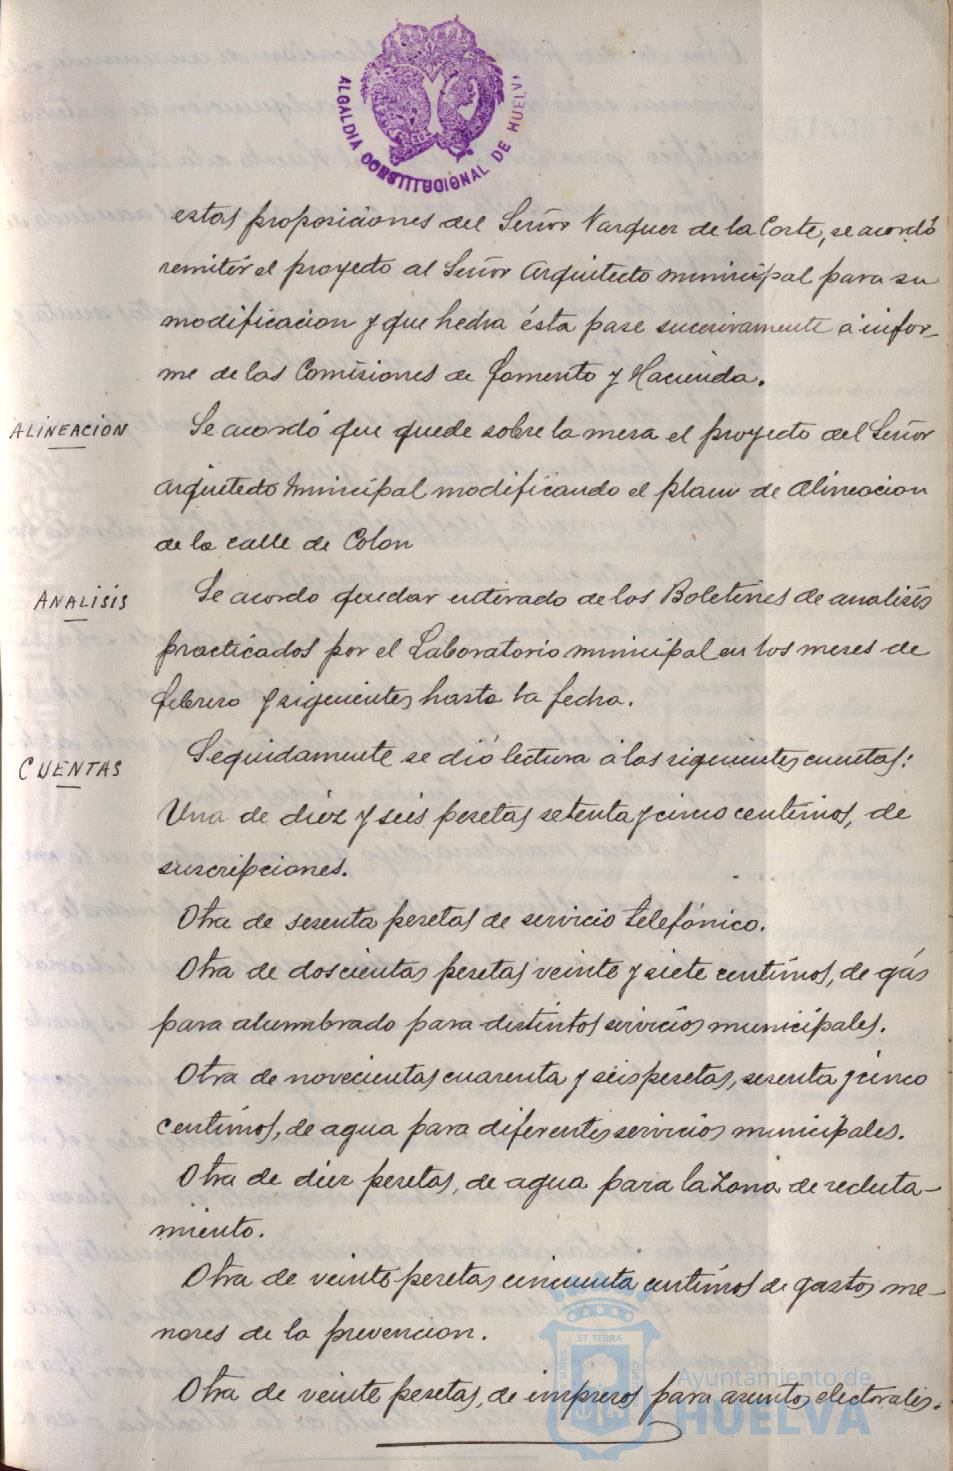 ALCALDIA CONSTITUCIONAL DE HUELVA
estas proposiciones del Señor Vazquez de la Corte, se acordó
remitir el proyecto al Señor Arquitecto municipal para su
modificacion y que hecha ésta pase sucesivamente á infor-
me de las Comisiones de fomento y Hacienda.
ALINEACION
Se acordó que quede sobre la mesa el proyecto del Señor
Arquitecto Municipal modificando el plano de Alineacion
de la calle de Colon
ANALISIS
Se acordo quedar enterado de los Boletines de analisis
practicados por el Laboratorio municipal en los meses de
febrero y siguientes hasta la fecha.
CUENTAS
Seguidamente se dió lectura á las siguientes cuentas:
Una de diez y seis pesetas setenta y cinco centimos, de
suscripciones.
Otra de sesenta pesetas de servicio telefónico.
Otra de doscientas pesetas veinte y siete centimos, de gas
para alumbrado para distintos servicios municipales.
Otra de novecientas cuarenta y seis pesetas, sesenta y cinco
centimos, de agua para diferentes servicios municipales.
Otra de diez pesetas, de agua para la Zona de recluta-
miento.
Otra de veinte pesetas cincuenta centimos de gastos me-
nores de la prevencion.
Otra de veinte pesetas, de impresos para asuntos electorales.
ET TERRÆ
Ayuntamiento de
HUELVA